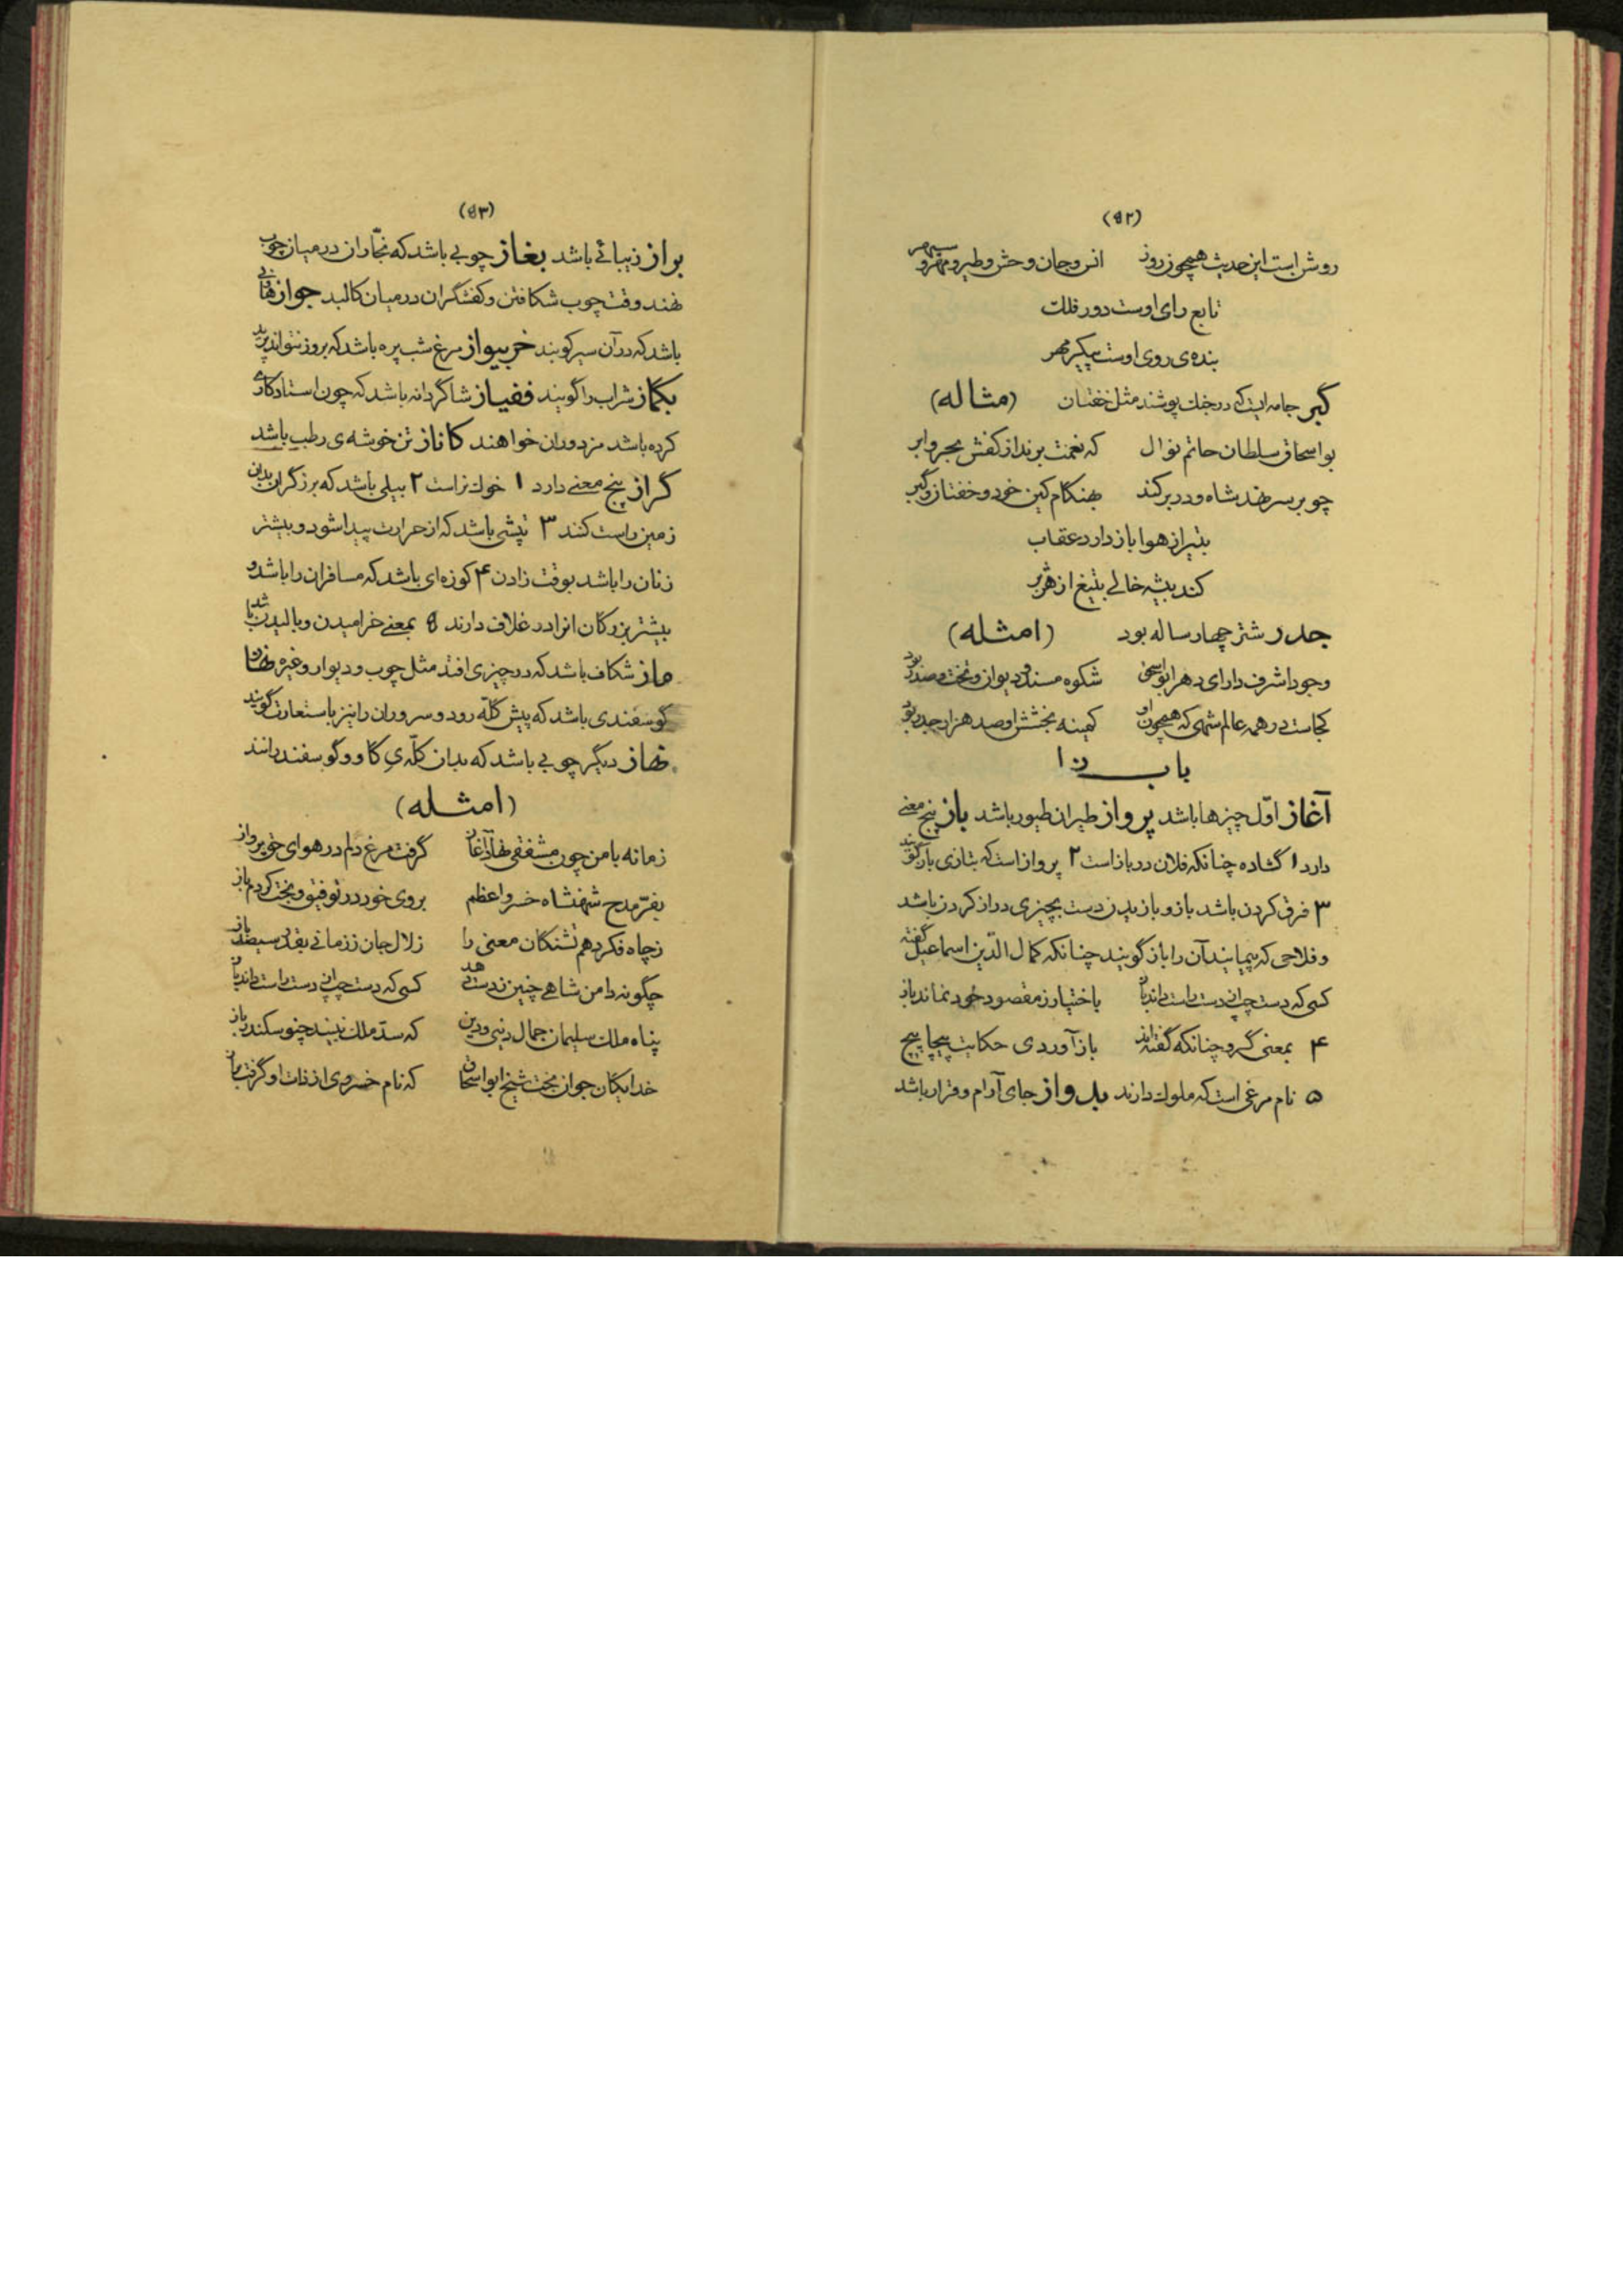 (۵۲)
روشن است این حدیث همچون روز انس و جان و حش و طیر و مهر و سپهر
تابع رای اوست دور فلک
بنده‌ی روی اوست پیکر مهر
گبر جامه ایست که در جنك پوشند مثل خفتان (مثاله)
بواسحاق سلطان حاتم نوال که نعمت برند از کفش بحر و ابر
چو بر سر نهد شاه و در بر کند بهنگام کین خود و خفتان و گبر
بتیر از هوا باز دارد عقاب
کند بیشه خالی بتیغ از هژبر
جدر شتر چهار ساله بود (امثله)
وجود اشرف دارای دهر ابواسحق شکوه مسند و دیوان و تخت و صدر بود
کجاست در همه عالم شهی که همچون او کمینه بخشش او صد هزار جدر بود
باب زا
آغاز اوّل چیزها باشد پرواز طیران طیور باشد باز پنج معنی
دارد ۱ گشاده چنانکه فلان در باز است ۲ پرواز است که بتازی باز گویند
۳ فرق کردن باشد باز و بازیدن دست بچیزی دراز کردن باشد
و فلاحی که بپیمایند آن را باز گویند چنانکه کمال الدّین اسماعیل گفته
کسی که دست چپ از دست راست داند باز باختیار ز مقصود خود نماند باز
۴ بمعنی گرو چنانکه گفته‌اند باز آوردی حکایت پیچاپیچ
۵ نام مرغی است که ملوك دارند بدواز جای آرام و قرار باشد
(۵۳)
براز زیبائی باشد بغاز چوبی باشد که نجّاران در میان چوب
نهند وقت چوب شکافتن و کفشگران در میان کالبد جواز هاونی
باشد که در آن سیر کوبند خربیواز مرغ شب پره باشد که بروز نتواند پرید
بگماز شراب را گویند فغیاز شاگردانه باشد که چون استاد کاری
کرده باشد مزدوران خواهند کاناز تن خوشه‌ی رطب باشد
گراز پنج معنی دارد ۱ خوك نر است ۲ بیلی باشد که برزگران بدین
زمین راست کنند ۳ تپشی باشد که از حرارت پیدا شود و بیشتر
زنان را باشد بوقت زادن ۴ کوزه‌ای باشد که مسافران را باشد و
بیشتر بزرگان انرا در غلاف دارند ۵ بمعنی خرامیدن و بالیدن باشد
ماز شکاف باشد که در چیزی افتد مثل چوب و دیوار و غیره نهاز
گوسفندی باشد که پیش گلّه رود و سروران را نیز باستعارت گویند
نهاز دیگر چوبی باشد که بدان گلّه‌ی گاو و گوسفند رانند
(امثله)
زمانه با من چون مشفقی نهاد آغاز گرفت مرغ دلم در هوای خود پرواز
بفرّ مدح شهنشاه خسرو اعظم بروی خود در توفیق و بخت کردم باز
ز چاه فکر دهم تشنگان معنی را زلال جان ز زمانی بقدر سیصد باز
چگونه دامن شاهی چنین ز دست دهد کسی که دست چپ از دست راست داند باز
پناه ملك سلیمان جمال دنیی و دین که سدّ ملك نبیند چنو سکندر باز
خدایگان جوان بخت شیخ ابو اسحاق که نام خسروی از ذات او گرفت براز